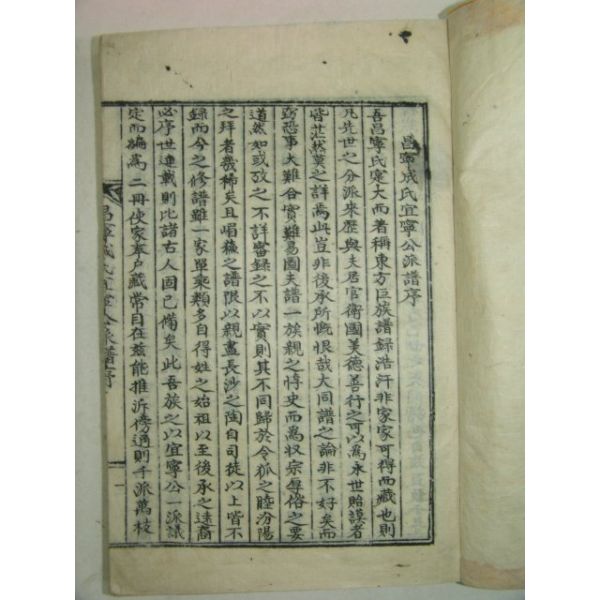 昌寧成氏宜寧公派譜序
吾昌寧氏寔大而著稱東方巨族譜錄浩汗非家家可得而藏也則
凡先世之分派來歷與夫居官衛國美德善行之可以爲永世貽謨者
皆茫然莫之詳焉此豈非後承所慨恨哉大同譜之論非不好矣而
窃恐事大難合實難易圖夫譜一族親之惇史而爲収宗導俗之要
道然如或攷之不詳審錄之不以實則其不同歸於令狐之睦汾陽
之拜者幾稀矣且唱穢之譜限以親盡長沙之陶自司徒以上皆不
錄而今之修譜雖一家單乘類多自得姓之始祖以至後承之遠裔
必序世連載則比諸古人固已備矣此吾族之以宜寧公一派議
定而編爲二冊使家奉戶藏常目在茲能推泝傍通則千派萬枝
昌寧成氏宜寧公派譜序
一